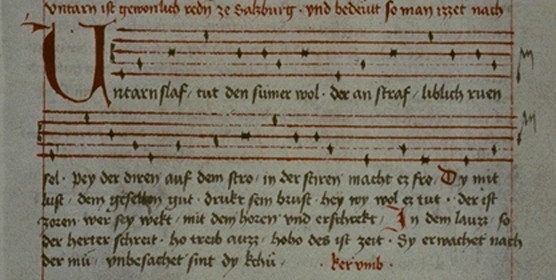 vntarn ist gewonlich redn ze Salzburg · vnd bedeutt so man izzet nach
Untarnslaf / tut den sumer wol · der an straf / liblich ruen
sol · pey der diren auf dem stro / in der stiren macht ez fro / Dy mit
lust / dem gesellen gut · drukt sein brust / hey wy wol ez tut · der ist
zoren / wer sey wekt / mit dem horen vnd erschrekt / In dem lauzz / so
der herter schreit · ho treib auzz / hoho des ist zeit · Sy erwachet nach
der mü / vnbesachet sint dy kchü · ker vmb ·